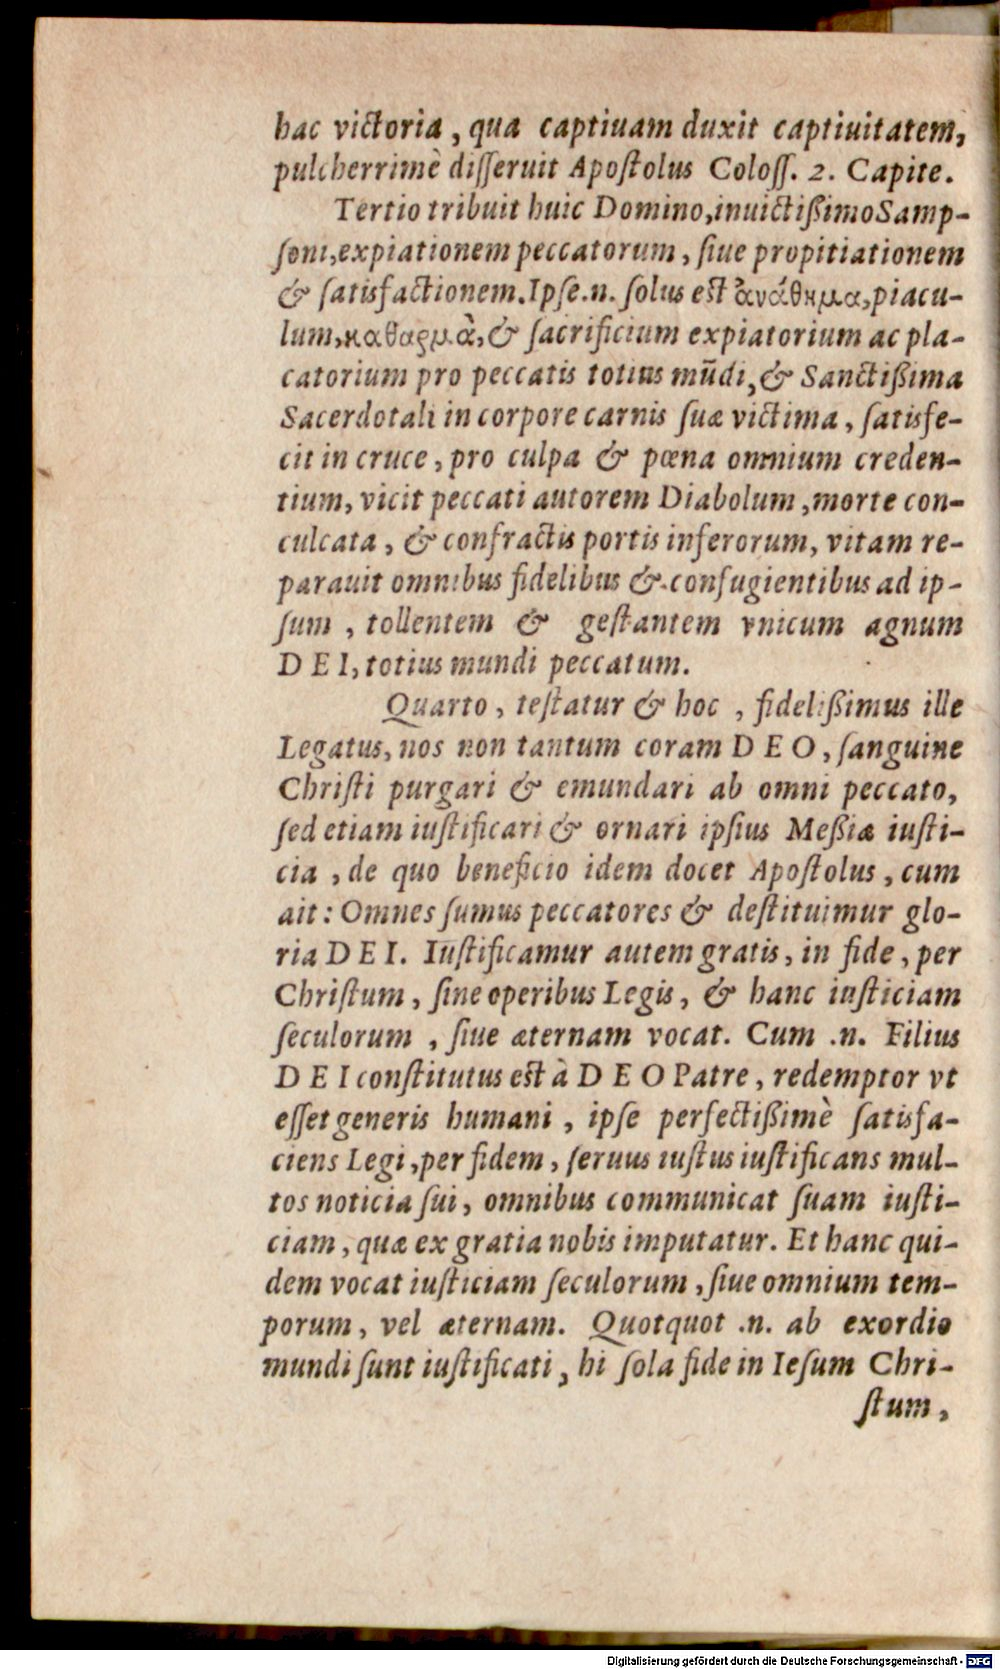 hac victoria, qua captiuam duxit captiuitatem,
pulcherrimè disseruit Apostolus Coloss. 2. Capite.
Tertio tribuit huic Domino, inuictißimo Samp-
soni, expiationem peccatorum, siue propitiationem
& satisfactionem. Ipse .n. solus est ἀνάθημα, piacu-
lum, καθαρμὰ, & sacrificium expiatorium ac pla-
catorium pro peccatis totius mūdi, & Sanctißima
Sacerdotali in corpore carnis suæ victima, satisfe-
cit in cruce, pro culpa & pœna omnium creden-
tium, vicit peccati autorem Diabolum, morte con-
culcata, & confractis portis inferorum, vitam re-
parauit omnibus fidelibus & confugientibus ad ip-
sum, tollentem & gestantem vnicum agnum
DEI, totius mundi peccatum.
Quarto, testatur & hoc, fidelißimus ille
Legatus, nos non tantum coram DEO, sanguine
Christi purgari & emundari ab omni peccato,
sed etiam iustificari & ornari ipsius Meßiæ iusti-
cia, de quo beneficio idem docet Apostolus, cum
ait: Omnes sumus peccatores & destituimur glo-
ria DEI. Iustificamur autem gratis, in fide, per
Christum, sine operibus Legis, & hanc iusticiam
seculorum, siue æternam vocat. Cum .n. Filius
DEI constitutus est à DEO Patre, redemptor vt
esset generis humani, ipse perfectißimè satisfa-
ciens Legi, per fidem, seruus iustus iustificans mul-
tos noticia sui, omnibus communicat suam iusti-
ciam, quæ ex gratia nobis imputatur. Et hanc qui-
dem vocat iusticiam seculorum, siue omnium tem-
porum, vel æternam. Quotquot .n. ab exordio
mundi sunt iustificati, hi sola fide in Iesum Chri-
stum,
Digitalisierung gefördert durch die Deutsche Forschungsgemeinschaft - DFG